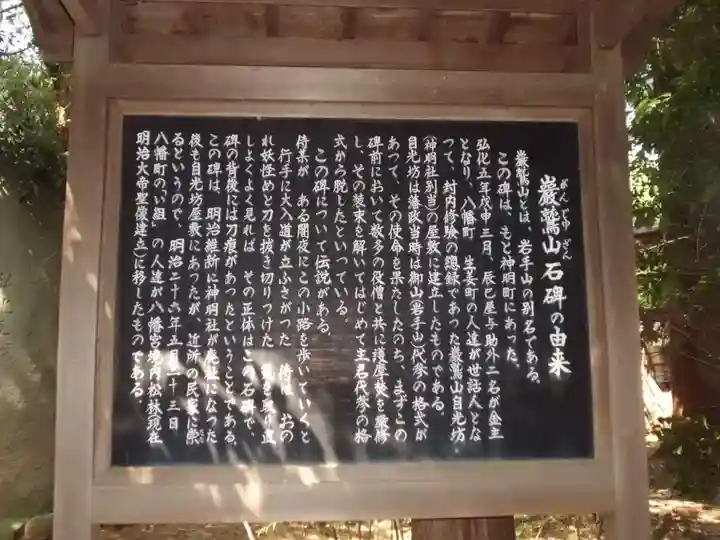 巖鷲山石碑の由来
がんじゅさん
巖鷲山とは、岩手山の別名である。
この碑は、もと神明町にあった。
弘化五年戊申三月、辰巳屋与助外二名が金主
となり、八幡町 生姜町の人達が世話人とな
って、封内修験の總録であった巖鷲山自光坊
(神明社別当)の屋敷に建立したものである。
自光坊は藩政当時は御山(岩手山)代参の格式が
あって、その使命を果たしたのち、まずこの
碑前において数多の役僧と共に護摩焚を厳修
し、その装束を解いてはじめて主君代参の格
式から脱したといっている
この碑について伝説がある。
侍某が ある闇夜にこの小路を歩いていくと
行手に大入道が立ふさがった 侍は おの
れ妖怪めと刀を抜き切りつけた 気を取り直
しよくよく見れば その正体はこの石碑で、
碑の背後には刀痕があったということである。
この碑は、明治維新に神明社が廃社になった
後も自光坊屋敷にあったが 近所の民家に祟
るというので、明治二十六年五月二十三日
八幡町の「い組」の人達が八幡宮境内松林(現在
明治大帝聖像建立)に移したものである